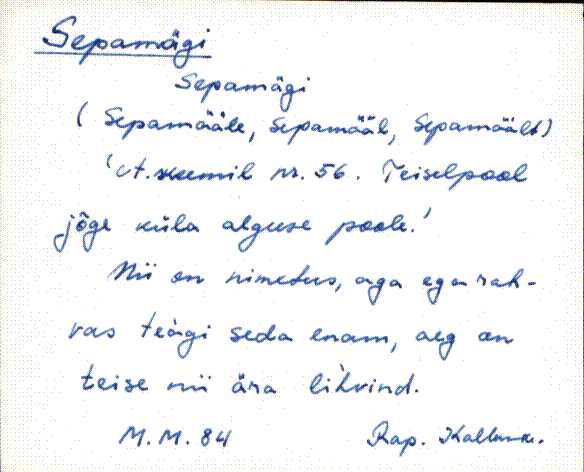 Sepamägi
Sepamägi
( Sepamääle, Sepamääl, Sepamäält)
'vt. skeemil nr. 56. Teiselpool
jõge küla alguse poole.'
Nii on nimetus, aga ega rah-
vas teagi seda enam, aeg on
teise nii ära lihvind.
M.M. 84 Rap.